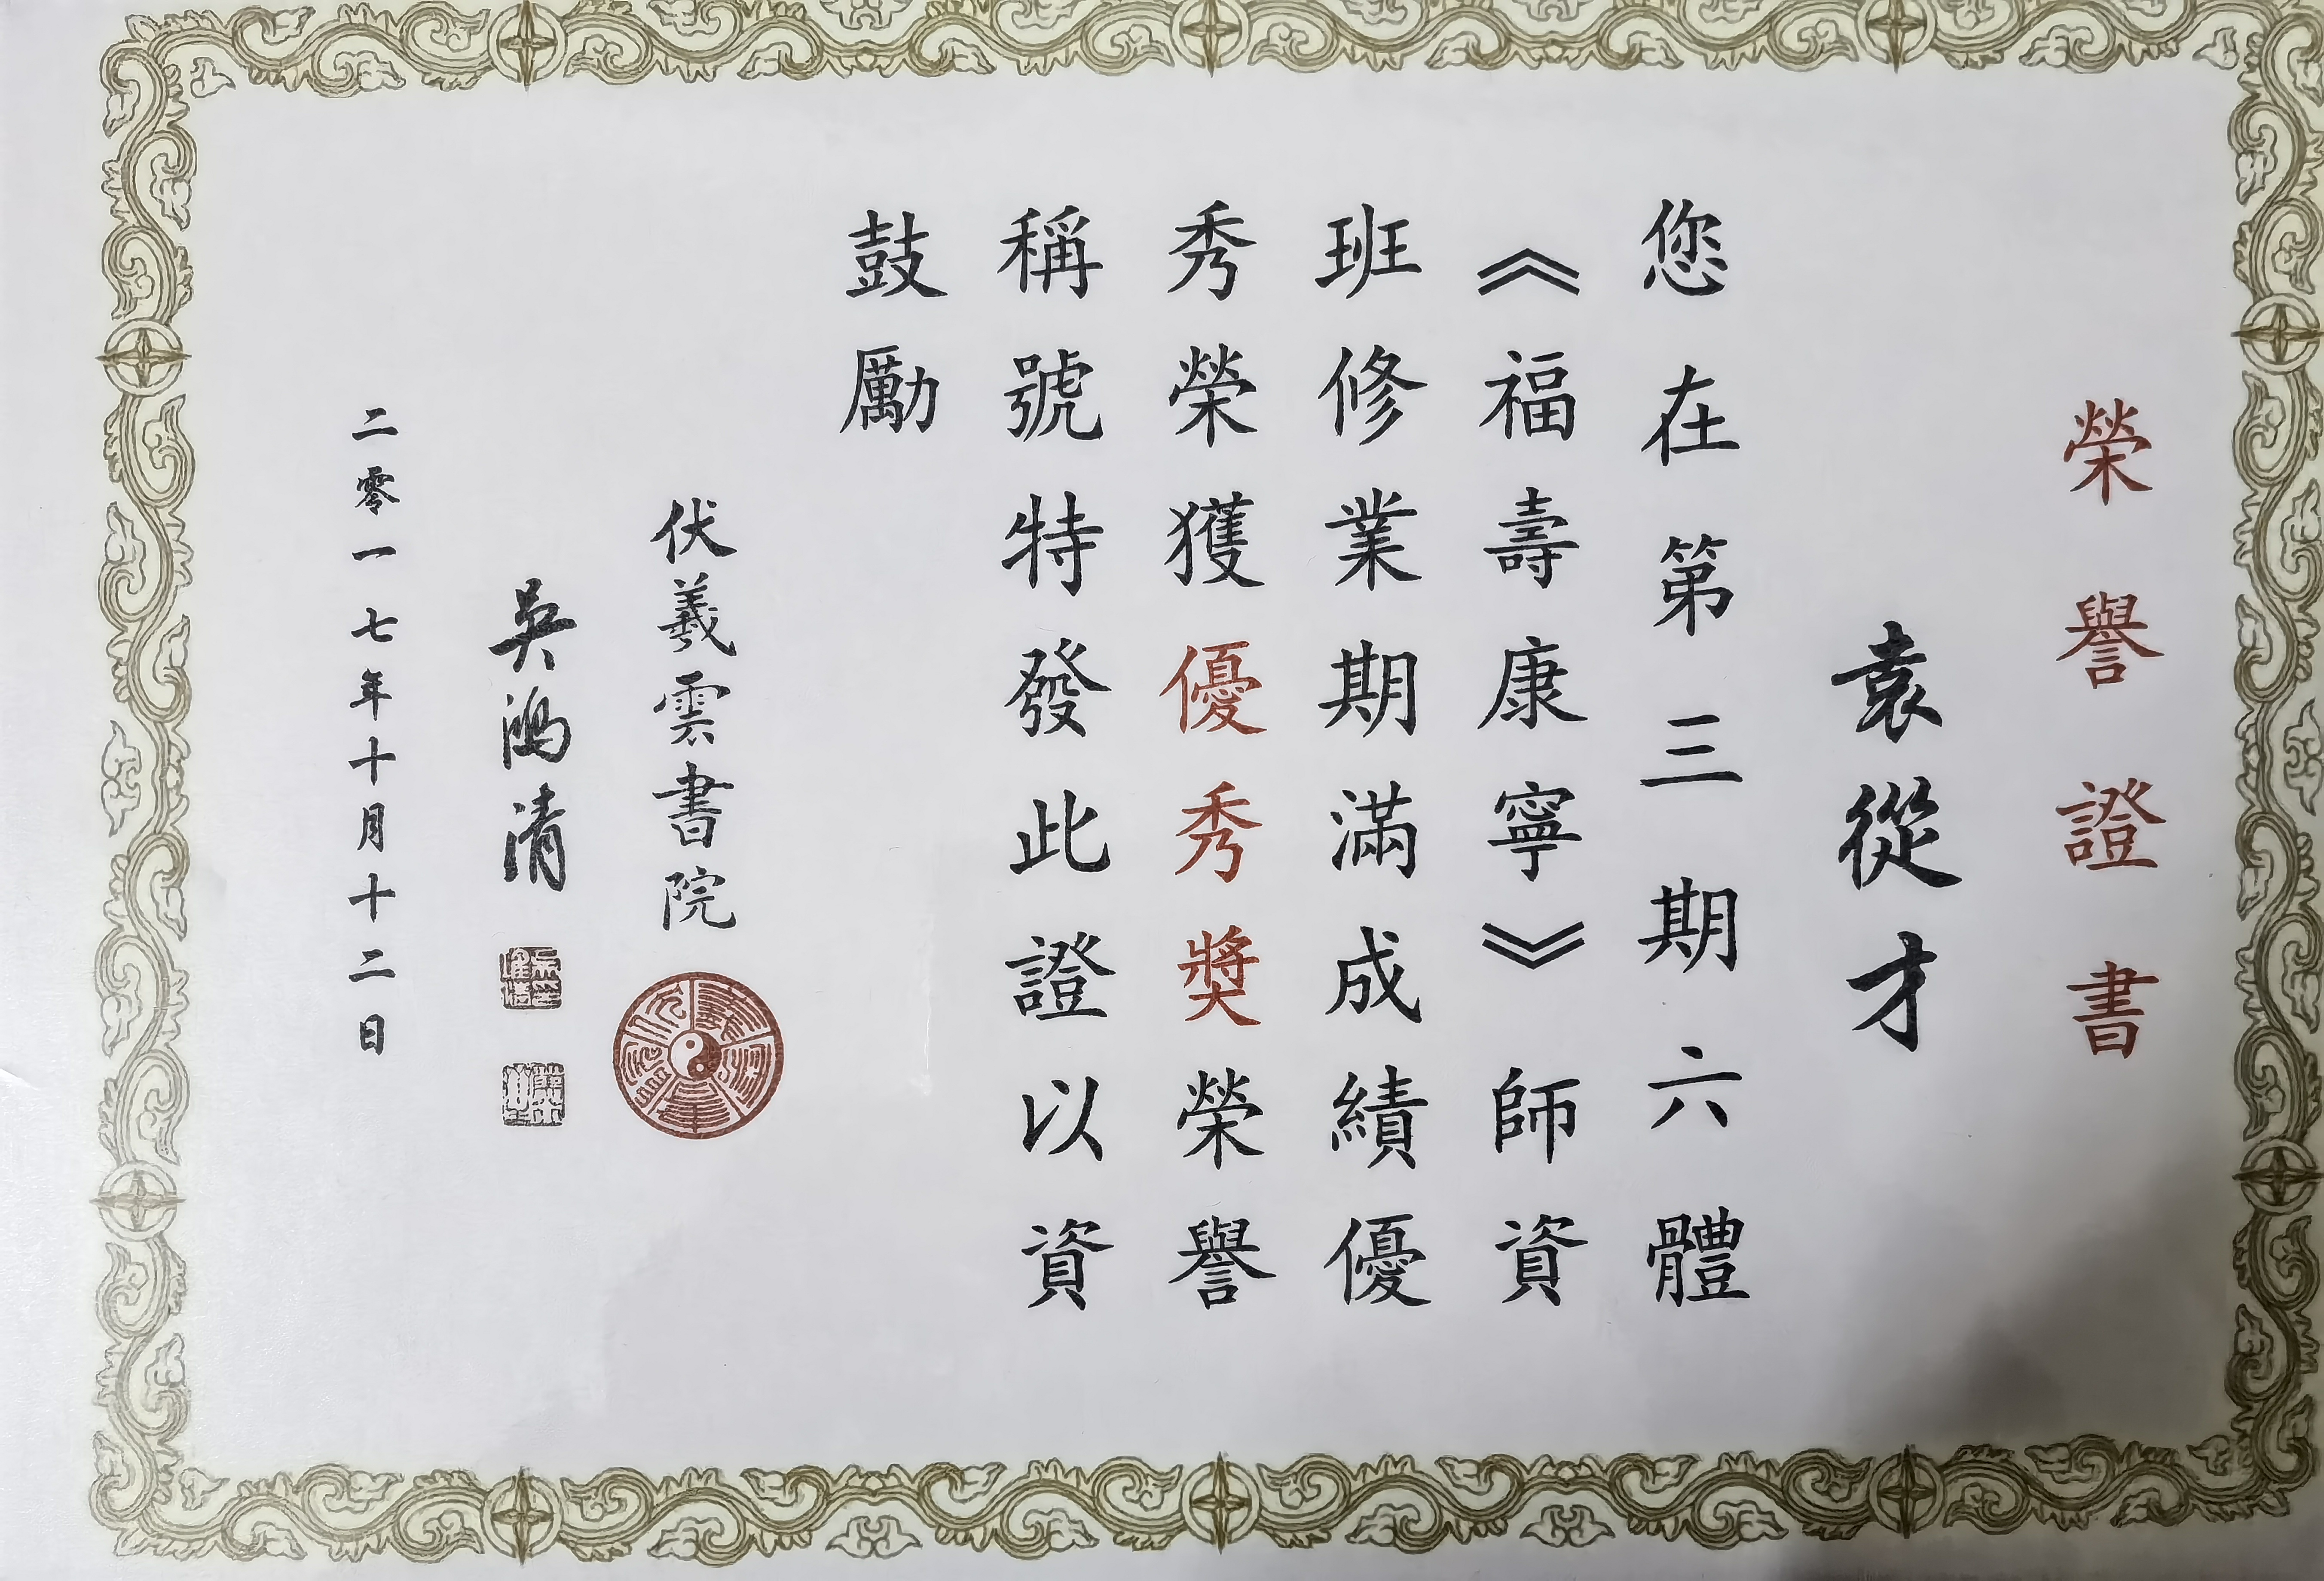 榮譽證書
袁從才
您在第三期六體
《福壽康寧》師資
班修業期滿成績優
秀榮獲優秀獎榮譽
稱號特發此證以資
鼓勵
伏羲雲書院
吳鴻清
二零一七年十月十二日